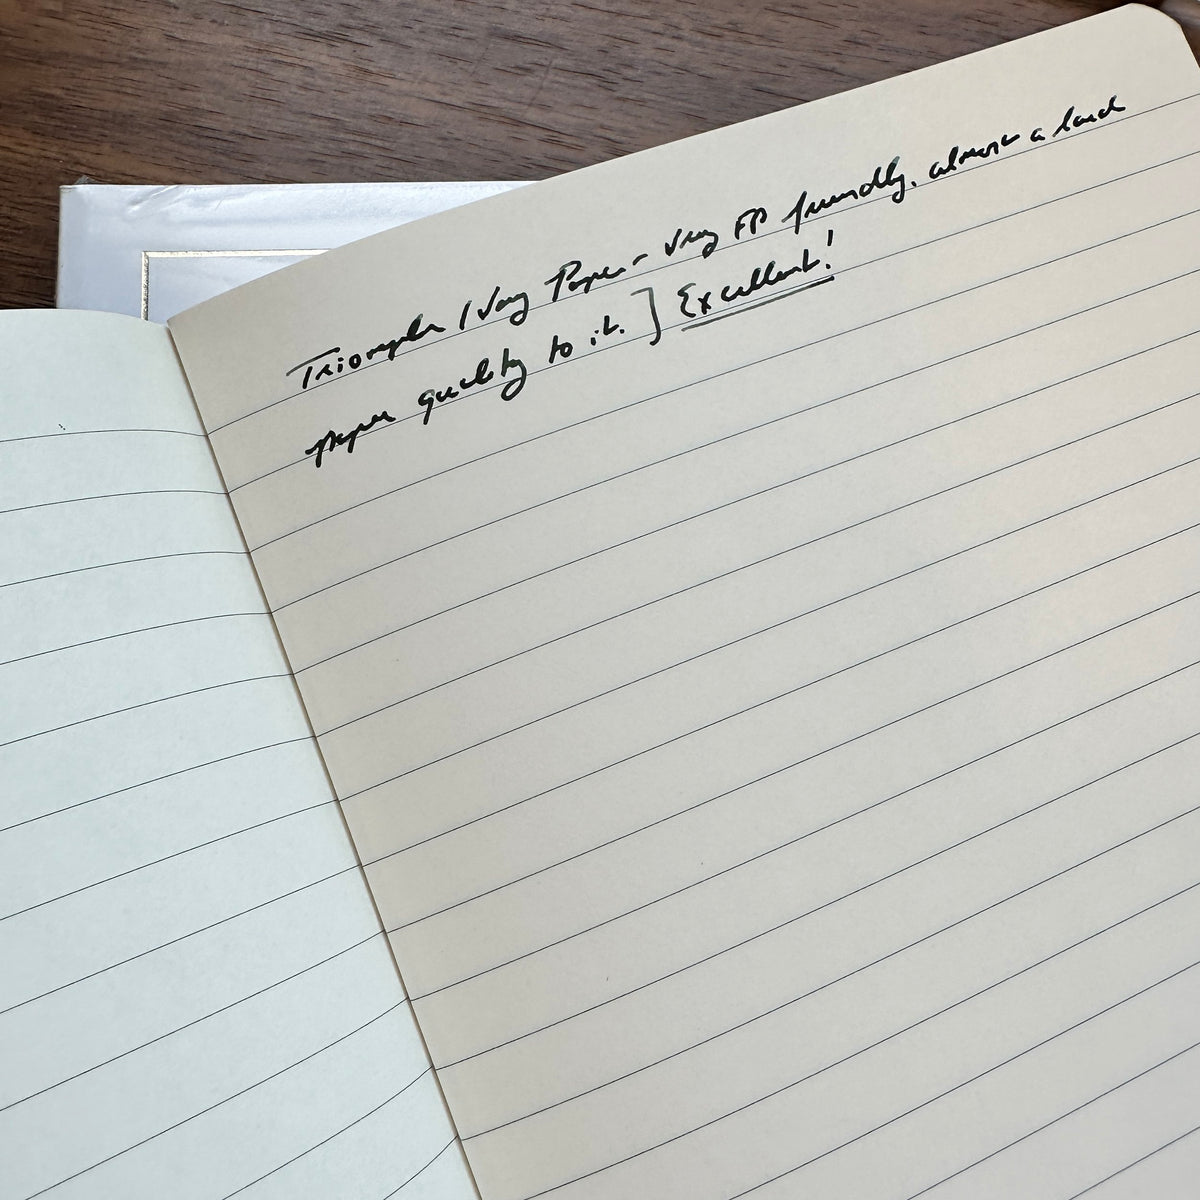 Triomphe / Ivory Paper - Very FP friendly, almost a hard
paper quality to it. } Excellent!